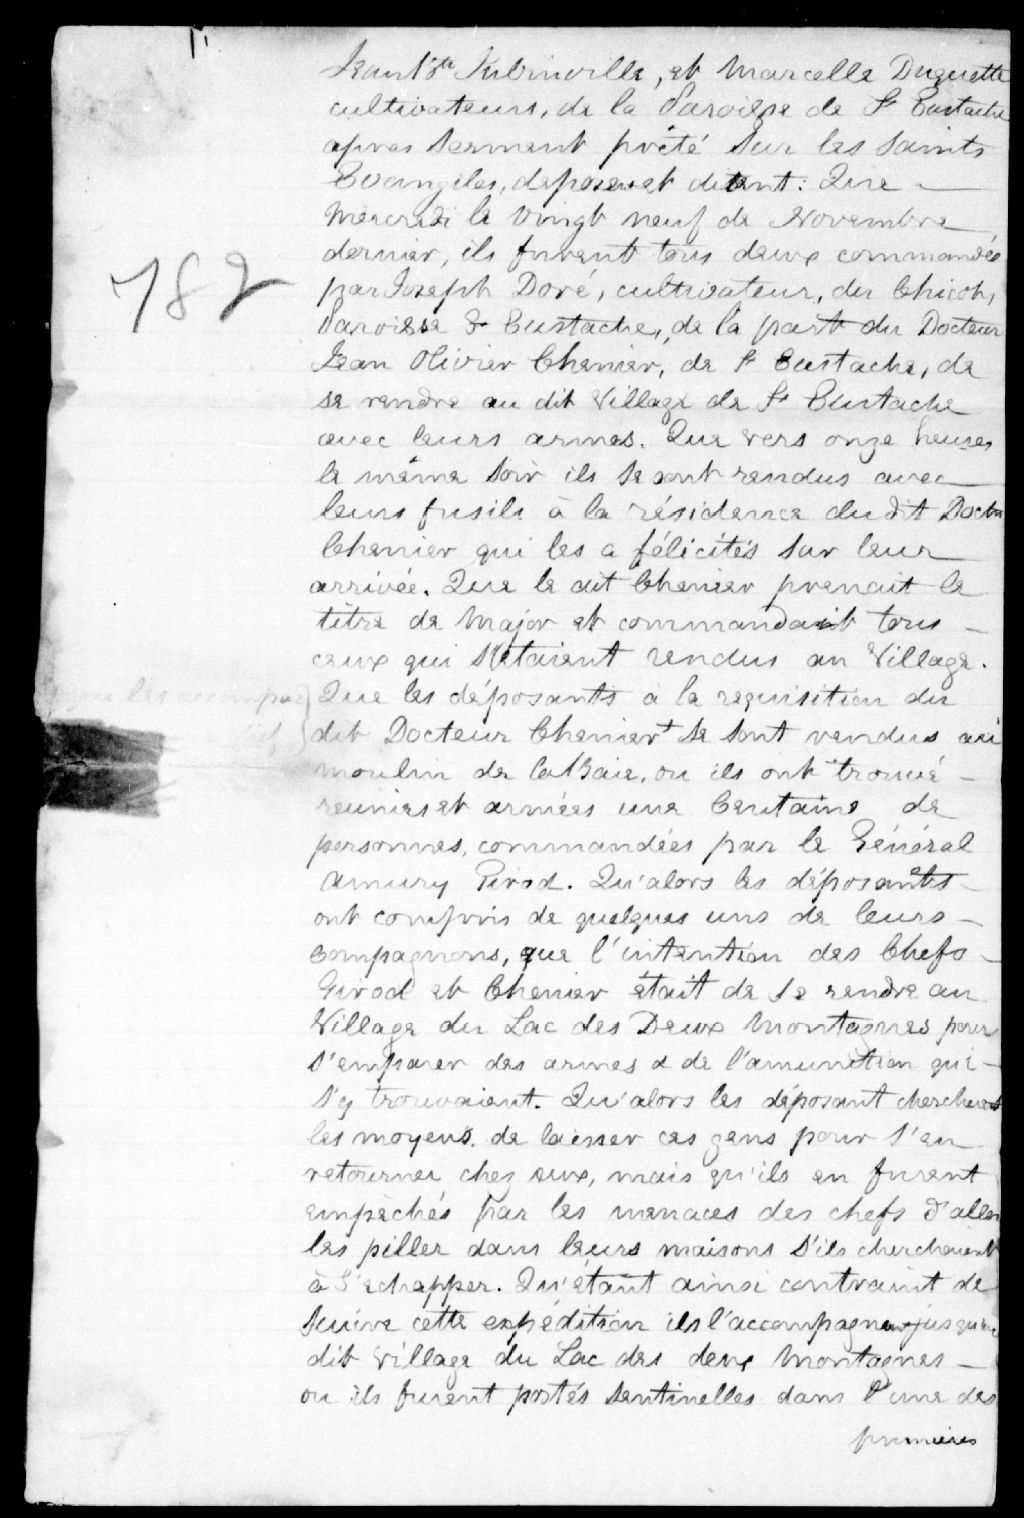 Jean Bte Kubinville, et Marcelle Duquette
cultivateurs, de la Paroisse de St Eustache
apres serment prêté sur les saints
Evangiles, deposent et disent: Que
Mercredi le vingt neuf de Novembre
dernier, ils furent tous deux commandés
par Joseph Doré, cultivateur, du Chicot,
782
Paroisse St Eustache, de la part du Docteur
Jean Olivier Chenier, de St Eustache, de
se rendre au dit Village de St Eustache
avec leurs armes. Que vers onze heures
le même soir ils se sont rendus avec
leurs fusils à la résidence du dit Docteur
Chenier qui les a félicités sur leur
arrivée. Que le dit Chenier prenait le
titre de Major et commandait tous
ceux qui s'étaient rendus au Village.
qui les accompag
Que les déposants à la requisition du
dit Docteur Chenier + se sont rendus au
moulin de la Baie, ou ils ont trouvé
reunies et armées une Centaine de
personnes, commandées par le Général
Amury Girod. Qu'alors les déposants
ont compris de quelques uns de leurs
compagnons, que l'intention des Chefs
Girod et Chenier était de se rendre au
Village du Lac des Deux Montagnes pour
s'emparer des armes & de l'amunition qui
s'y trouvaient. Qu'alors les déposant cherchèrent
les moyens de laisser ces gens pour s'en
retourner chez eux, mais qu'ils en furent
empêchés par les menaces des chefs d'aller
les piller dans leurs maisons s'ils cherchaient
à s'echapper. Qu'étant ainsi contraint de
suivre cette expédition ils l'accompagner jusqu'au
dit village du Lac des deux Montagnes
ou ils furent postés sentinelles dans l'une des
premières